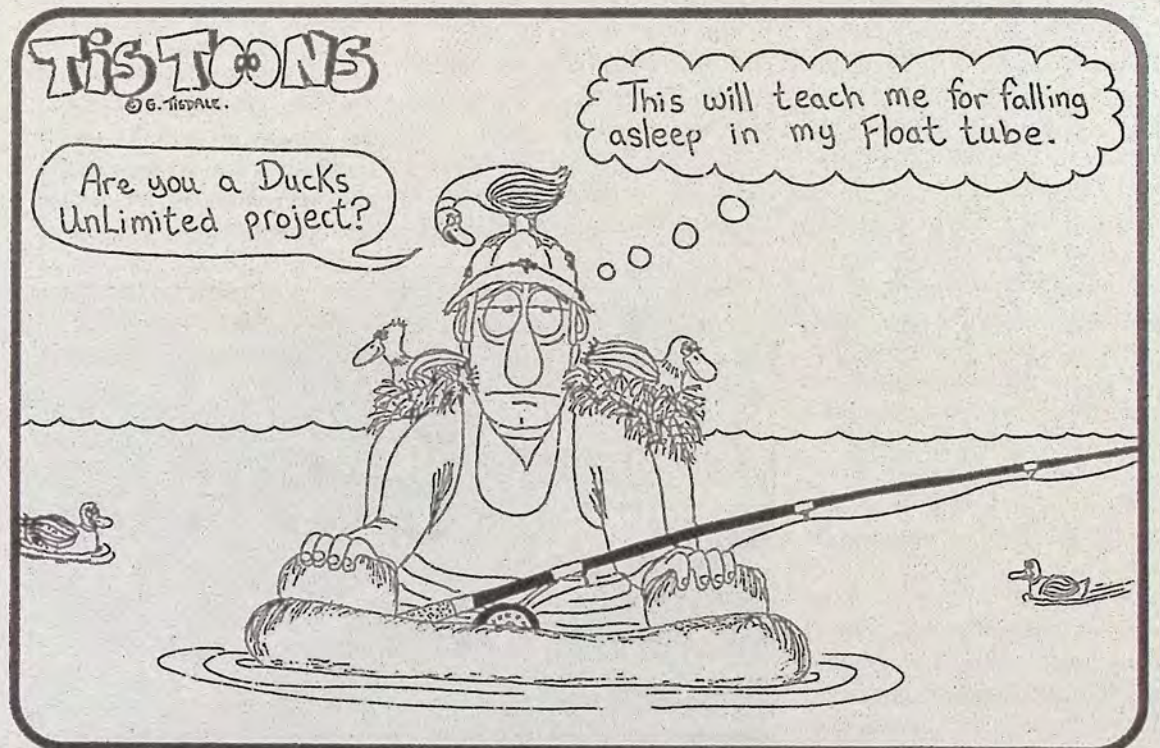 TisTOONS
© G. TISDALE.
This will teach me for falling
asleep in my Float tube.
Are you a Ducks
UnLimited project?